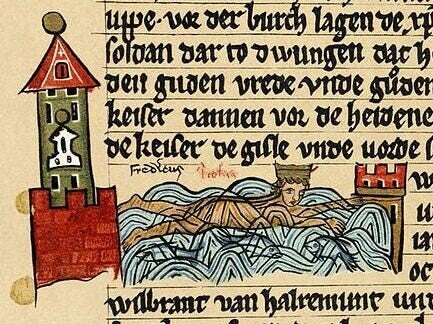 uppe. vor der burch lagen de
soldan dar to dwungen dat h
den guden vrede. vnde guͦden
keiser dannen vor de heidene
de keiser de gisle vnde uorde
fredicus
wilbrant van halremunt